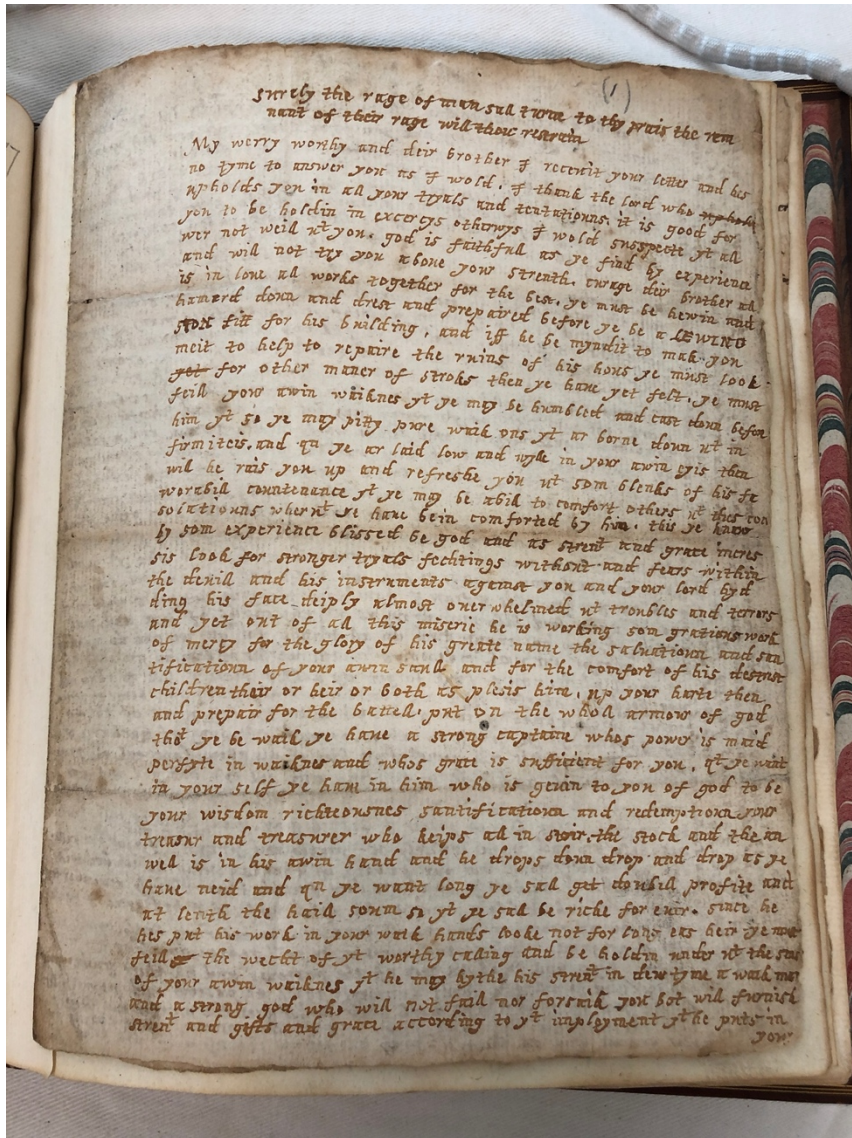 (1)
surely the rage of man sall turne to thy prais the rem
nant of their rage will thow restrain
My werry worthy and deir brother I receivit your letter and hes
no tyme to answer you as I wold. I thank the lord who uphol
upholds you in all your tryals and tentationns. it is good for
you to be holdin in excercys otherways I wold susspecte yt all
wer not weill wt you. god is faithfull as ye find by experience
and will not try you above your strenth. curage deir brother all
is in love all works together for the best. ye must be hewin and
hamerd doun and drest and prepaired before ye be a LEWING
STON fitt for his building, and iff he be myndit to mak you
meit to help to repaire the ruins of his hous ye must look
get for other maner of stroks then ye have yet felt. ye must
feill your awin waiknes yt ye may be humbled and cast doun before
him yt so ye may pitty pure waik ons yt ar borne doun wt in
firmiteis. and qn ye ar laid low and wyle in your awin eyis then
will he rais you up and refreshe you wt som blenks of his fa
worabill countenance yt ye may be abill to comfort others wt thes con
solationns wherwt ye have bein comforted by him. this ye know
by som experience blissed be god and as strent and grace incres
sis look for stronger tryals fechtings without and fears within
the devill and his instruments against you and your lord hyd
ding his face deiply almost overwhelmed wt troubles and terrors
and yet out of all this miserie he is working som gratious work
of mercy for the glory of his greate name the salvationn and san
tificationn of your awin saull and for the comfort of his destrest
children their or heir or both as plesis him. up your harte then
and prepair for the battell. put on the wholl armour of god
thot ye be waik ye have a strong captaine whos power is maid
perfyte in waiknes and whos grace is sufficient for you, qt ye want
in your self ye have in him who is gevin to you of god to be
your wisdom richteousnes santificationn and redemptionn your
treasur and treasurer who keips all in stoir. the stock and the an
well is in his awin hand and he drops doun drop and drop as ye
have neid and qn ye want long ye sall get doubill profite and
at lenth the haill soum so yt ye sall be riche for ever. since he
hes put his work in your waik hands looke not for long eas heir ye must
feill the wecht of yt worthy calling and be holdin under wt the sens
of your awin waiknes yt he may kythe his strent in dew tyme a waik man
and a strong god who will not faill nor forsaik you bot will furnish
strent and gifts and grace according to yt imployment yt he puts in
your